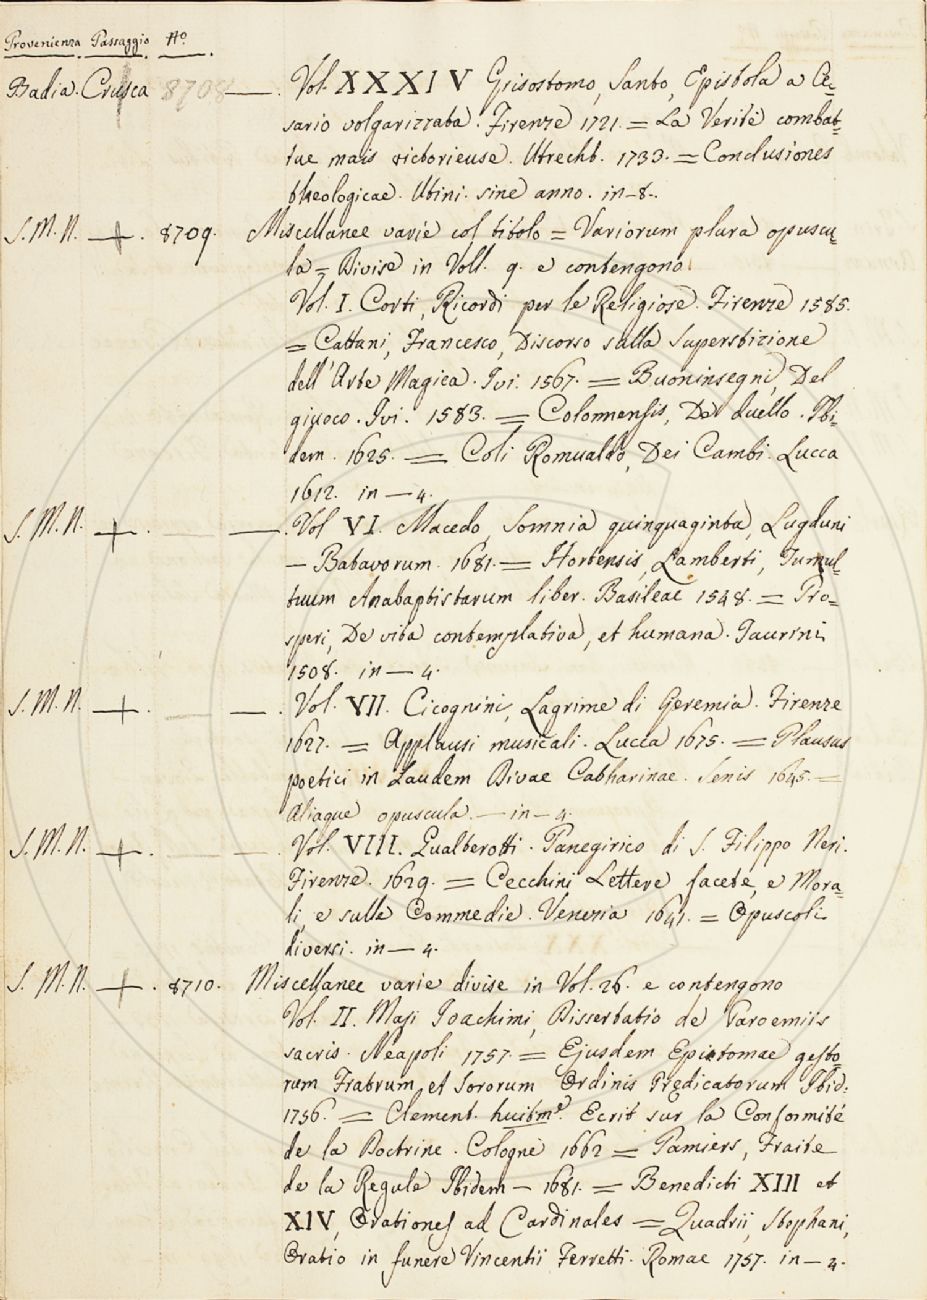 Provenienza Passaggio N.º
Badia. Crusca 8708 — . Vol. XXXIV Grisostomo, Santo, Epistola a Ce=
sario volgarizzata. Firenze 1721. = La Verité combat=
tue mais victorieuse. Utrecht. 1733. = Conclusiones
theologicae. Utini. sine anno. in-8.
S. M. N. + . 8709. Miscellanee varie col titolo = Variorum plura opuscu=
la = Divise in Voll. 9. e contengono
Vol. I. Corti, Ricordi per le Religiose. Firenze 1585.
= Cattani, Francesco, Discorso sulla Superstizione
dell'Arte Magica. Ivi. 1567. = Buoninsegni, Del
giuoco. Ivi. 1583. = Colomnensis, De duello. Ibi=
dem. 1625. = Coli Romualdo, Dei Cambi. Lucca
1612. in — 4.
S. M. N. + . — — . Vol VI. Macedo, Somnia quinquaginta, Lugduni
— Batavorum. 1681. = Hortensis, Lamberti, Tumul=
tuum Anabaptistarum liber. Basileae 1548. = Pro=
speri, De vita contemplativa, et humana. Taurini
1508. in — 4.
S. M. N. + . — — . Vol. VII. Cicognini, Lagrime di Geremia. Firenze
1627. = Applausi musicali. Lucca 1675. = Plausus
poetici in Laudem Divae Catharinae. Senis 1645. =
Aliaque opuscula. — in — 4.
S. M. N. + . — — Vol. VIII. Gualberotti. Panegirico di S. Filippo Neri.
Firenze. 1629. = Cecchini Lettere facete, e Mora=
li, e sulle Commedie. Venezia 1641. = Opuscoli
diversi. in — 4.
S. M. N. + . 8710. Miscellanee varie divise in Vol. 26. e contengono
Vol. II. Masi Joachimi, Dissertatio de Paroemiis
sacris. Neapoli 1757. = Ejusdem Epistomae gesto
rum Fratrum, et Sororum Ordinis Predicatorum Ibid:
1756. = Clement. huitme. Ecrit sur la Conformité
de la Doctrine. Cologne 1662 = Pamiers, Traite
de la Regale Ibidem — 1681. = Benedicti XIII et
XIV, Orationes ad Cardinales = Quadrii, Stophani,
Oratio in funere Vincentii Ferretti. Romae 1757. in — 4.